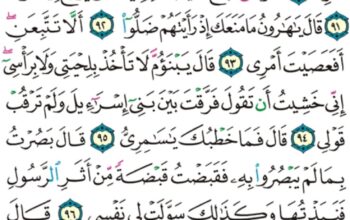 ٩١ قَالَ يَٰهَٰرُونُ مَا مَنَعَكَ إِذۡ رَأَيۡتَهُمۡ ضَلُّوٓاْ ٩٢ أَلَّا تَتَّبِعَنِۖ
أَفَعَصَيۡتَ أَمۡرِي ٩٣ قَالَ يَبۡنَؤُمَّ لَا تَأۡخُذۡ بِلِحۡيَتِي وَلَا بِرَأۡسِيٓۖ
إِنِّي خَشِيتُ أَن تَقُولَ فَرَّقۡتَ بَيۡنَ بَنِيٓ إِسۡرَٰٓءِيلَ وَلَمۡ تَرۡقُبۡ
قَوۡلِي ٩٤ قَالَ فَمَا خَطۡبُكَ يَٰسَٰمِرِيُّ ٩٥ قَالَ بَصُرۡتُ
بِمَا لَمۡ يَبۡصُرُواْ بِهِۦ فَقَبَضۡتُ قَبۡضَةٗ مِّنۡ أَثَرِ ٱلرَّسُولِ
فَنَبَذۡتُهَا وَكَذَٰلِكَ سَوَّلَتۡ لِي نَفۡسِي ٩٦ قَالَ